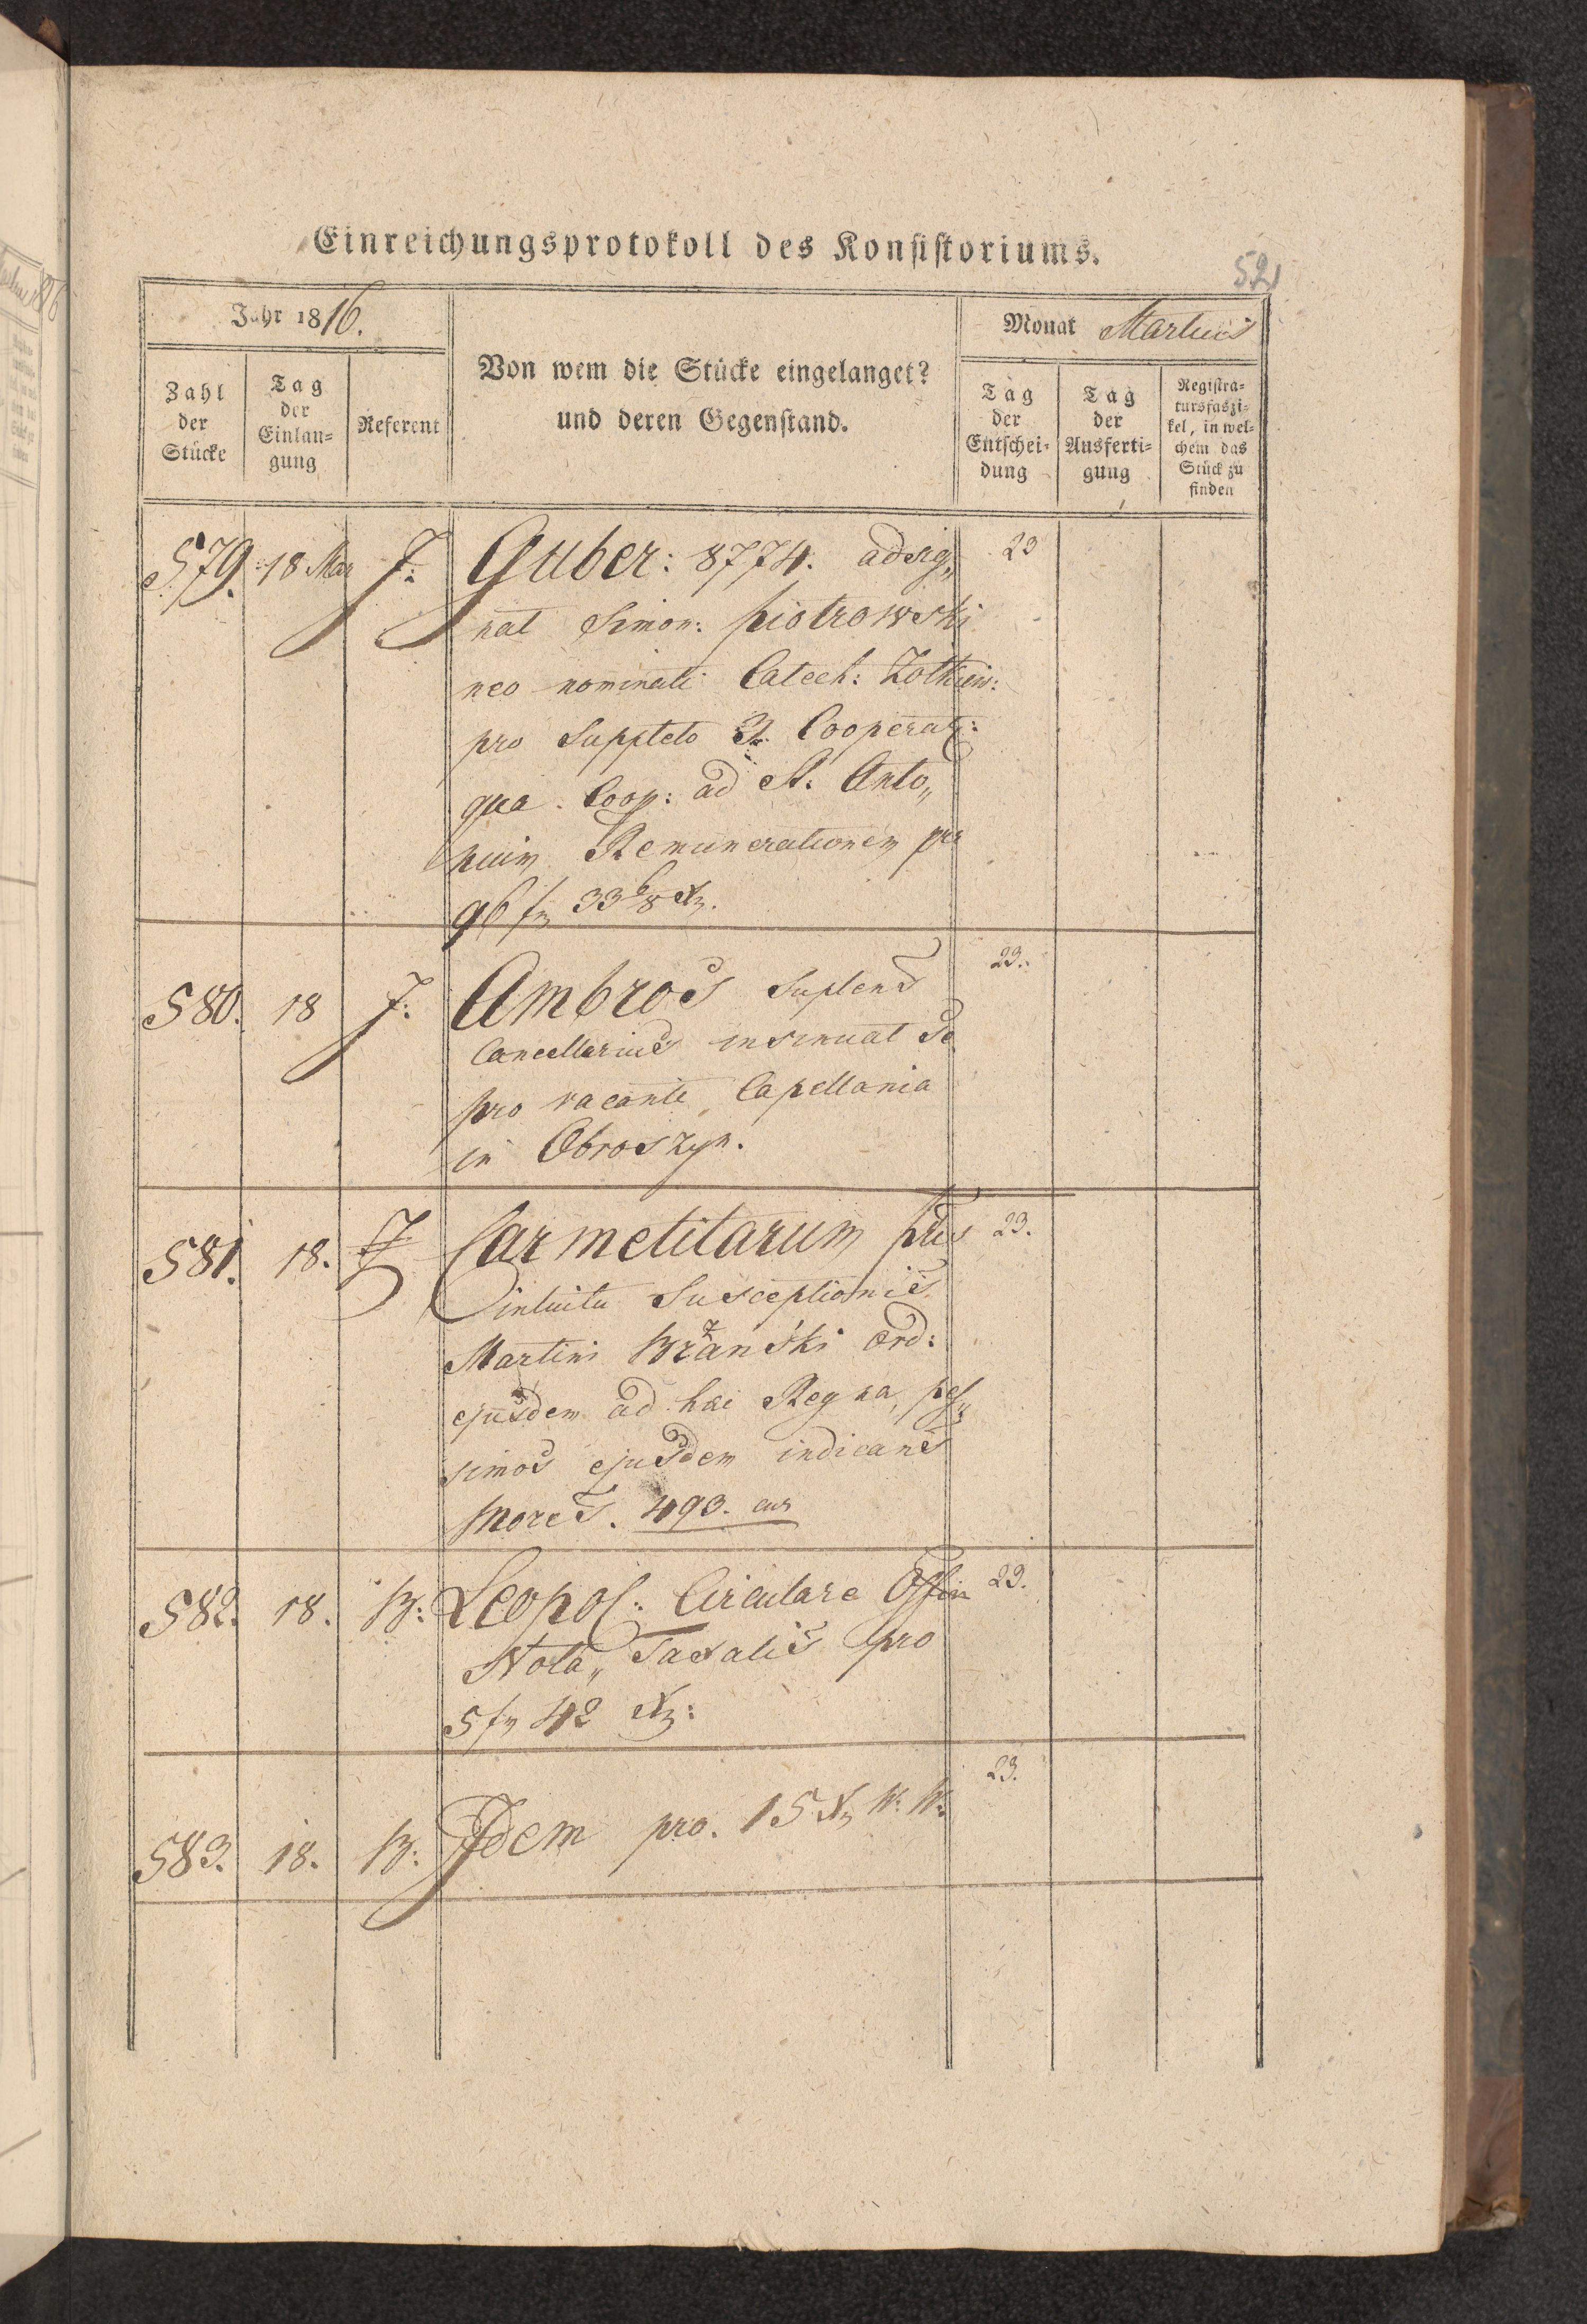 Einreichungsprotokoll des Konsistoriums.
52
Jahr 1816.
Monat Martius
Zahl der Stücke
Tag der Einlangung
Referent
Von wem die Stücke eingelanget?
und deren Gegenstand.
Tag der Entscheidung
Tag der Ausfertigung
Registratursfaszikel, in welchem das Stück zu finden
579. 18 Mar J: Guber: 8774. adsig„ 23
nat Simon: Piotrowski
neo nominati Catech: Zolkiew:
pro suppleto Cooperat:
qua Coop: ad St. Anto„
nium Remunerationem per
96 fr 33 6/8 Xr.
580. 18 J: Ambros Suplens 23.
Cancellarius insinuat se
pro vacante Capellania
in Obroszyn.
581. 18. J Carmelitarum 23.
intuitu Susceptionis
Martini Brzanski Ord:
ejusdem ad hae Regna, pes„
simos ejusdem indicans
Mores. 493. cur
582. 18. B: Leopol: Circulare Offin 23.
Nota„ Taxalis pro
5 fr 42 Xr:
583. 18. B: Idem pro. 15 Xr W: W: 23.